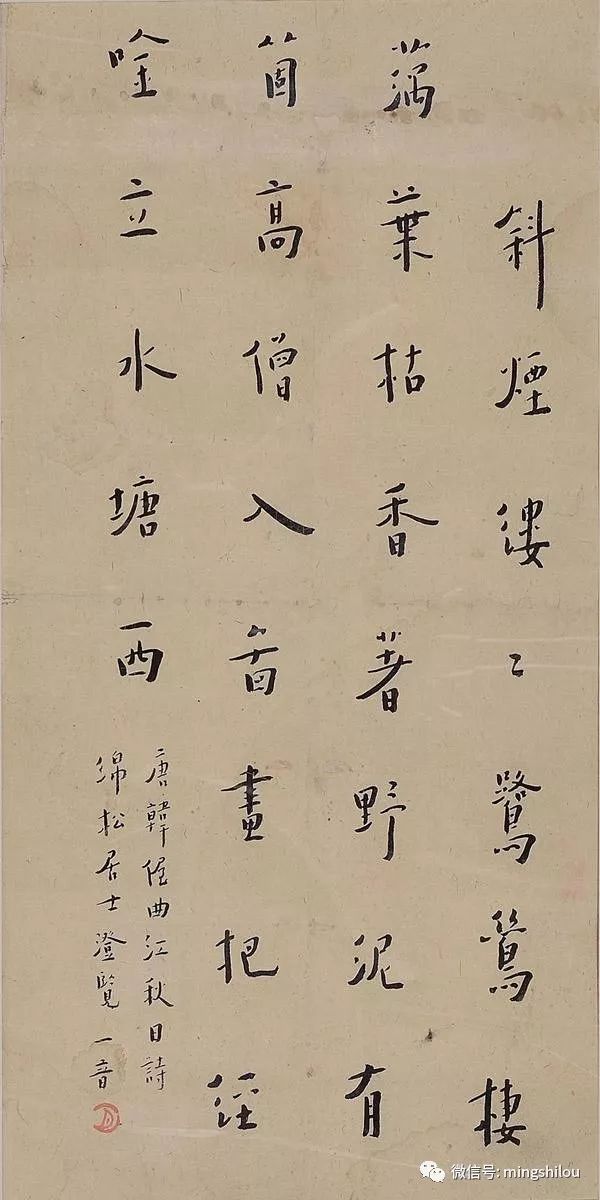 斜煙縷〻鷺鷥棲
藕葉枯香著野泥有
箇高僧入啚畫把經
唫立水塘西
唐韓偓曲江秋日詩
綿松居士澄覽 一音
微信号: mingshilou